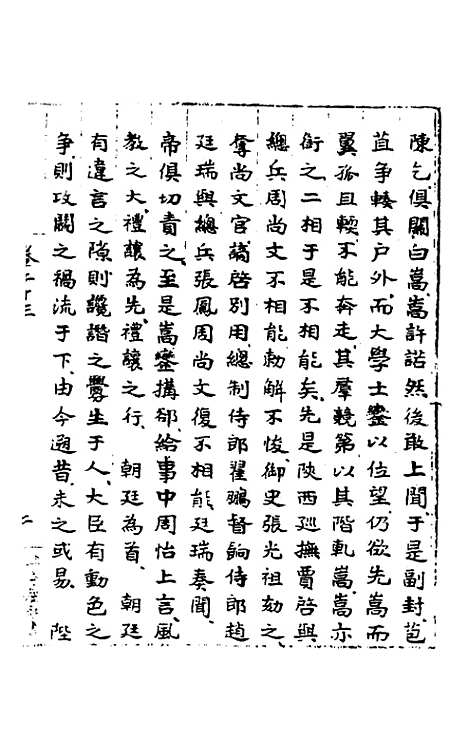 陳乞俱關白嵩嵩許諾然後敢上聞于是副封苞
苴争輳其户外而大學士鑾以位望仍欲先嵩而
翼孤且輭不能奔走其羣競第以其階軋嵩嵩亦
銜之二相于是不相能矣先是陝西廵撫賈啓與
總兵周尚文不相能勅解不悛御史張光祖劾之
奪尚文官謫啓别用總制侍郎翟鵬督餉侍郎趙
廷瑞與總兵張鳳周尚文復不相能廷瑞奏聞
帝俱切責之至是嵩鑾搆郤給事中周怡上言風
教之大禮讓為先禮讓之行 朝廷為首 朝廷
有違言之隙則讒譖之釁生于人大臣有動色之
争則攻鬭之禍流于下由今遡昔未之或易 陛
卷二十三
二